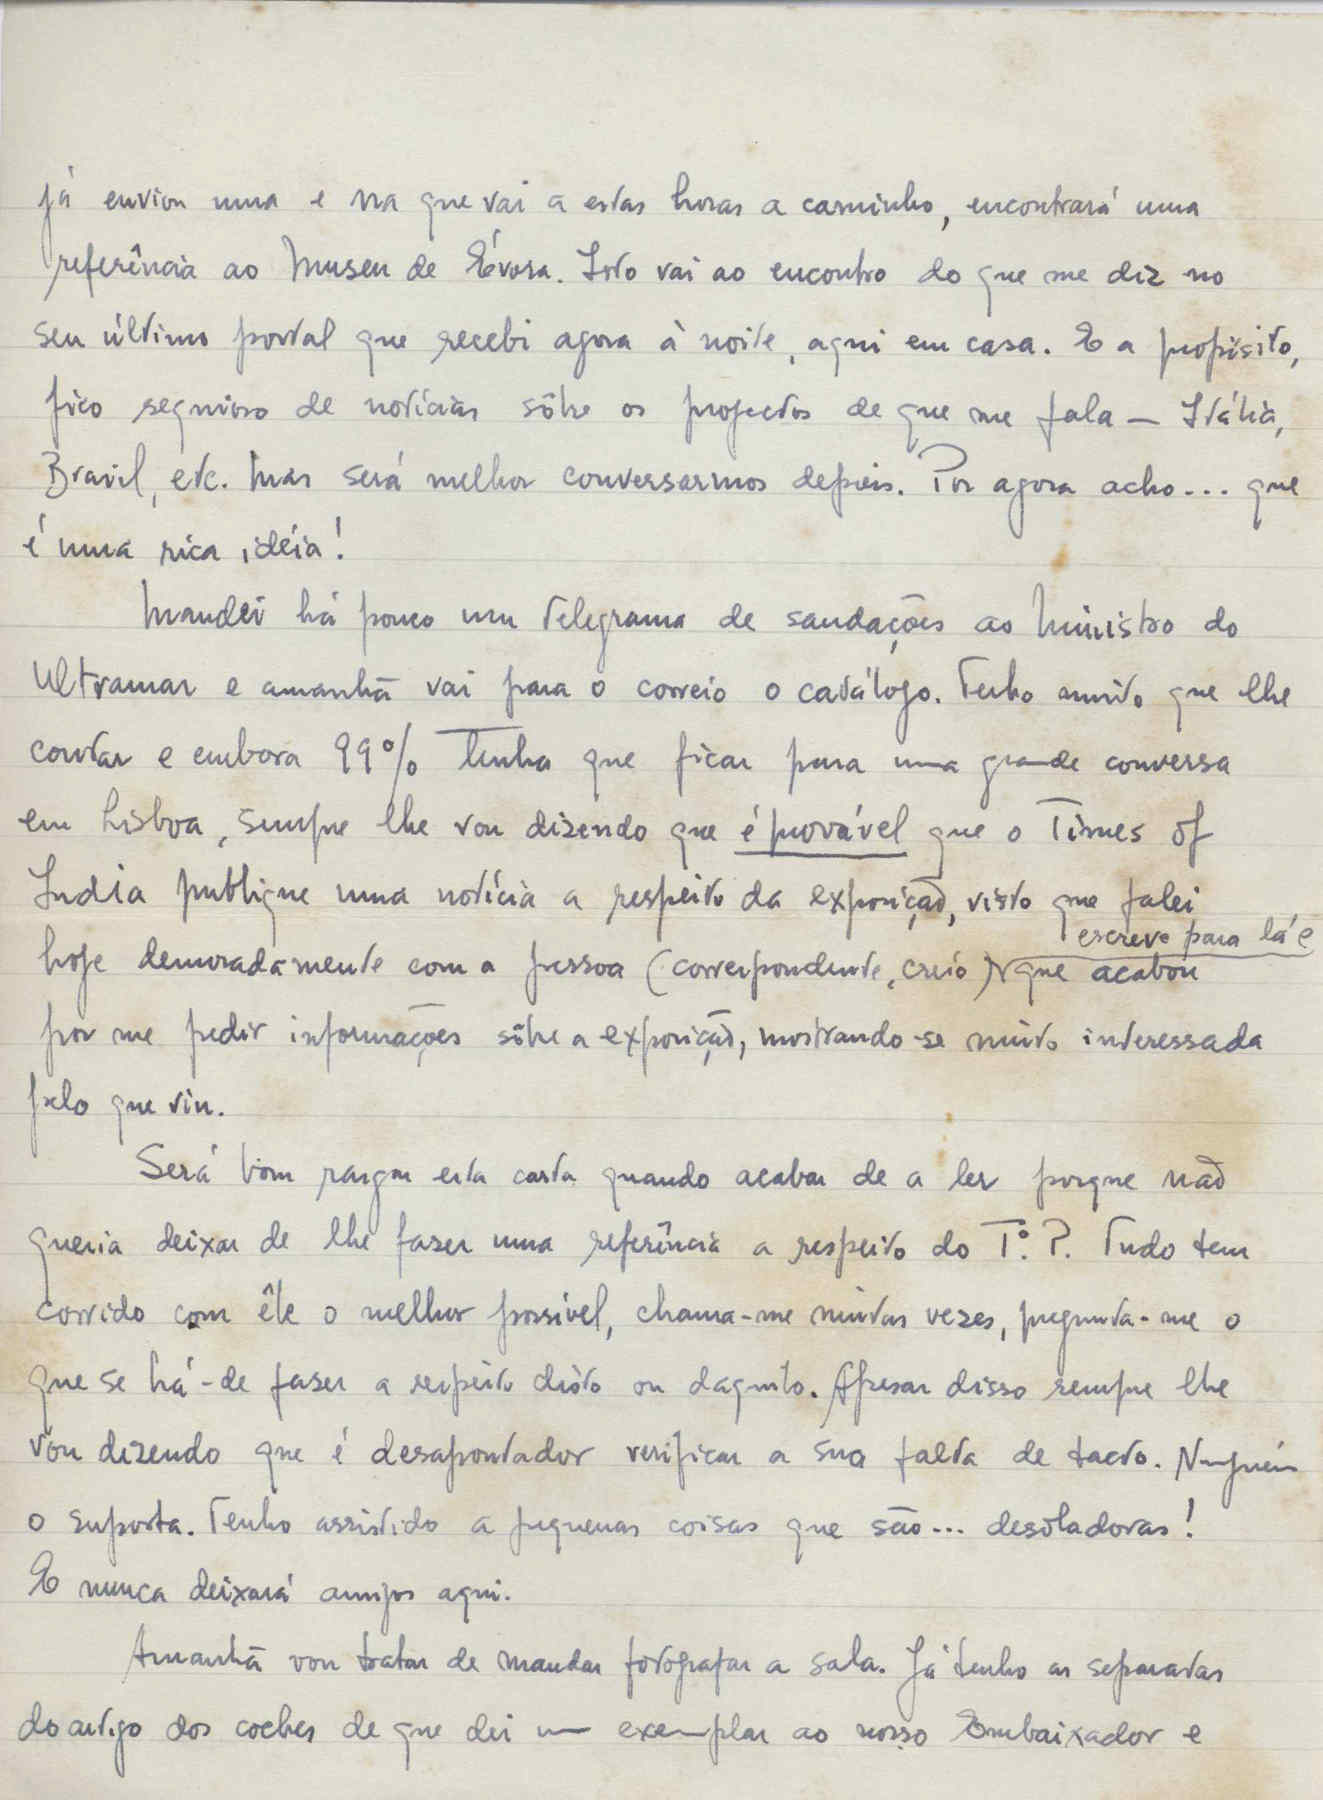 já enviou uma e na que vai a estas horas a caminho, encontrará uma
referência ao Museu de Évora. Isto vai ao encontro do que me diz no
seu último postal que recebi agora à noite, aqui em casa. E a propósito,
fico sequioso de notícias sôbre os projectos de que me fala — Itália,
Brasil, etc. Mas será melhor conversarmos depois. Por agora acho... que
é uma rica idéia!
Mandei há pouco um telegrama de saudações ao Ministro do
Ultramar e amanhã vai para o correio o catálogo. Tenho muito que lhe
contar e embora 99% tenha que ficar para uma grande conversa
em Lisboa, sempre lhe vou dizendo que é provável que o Times of
India publique uma notícia a respeito da exposição, visto que falei
escreve para lá e
hoje demoradamente com a pessoa (correspondente, creio) que acabou
por me pedir informações sôbre a exposição, mostrando-se muito interessada
pelo que viu.
Será bom rasgar esta carta quando acabar de a ler porque não
queria deixar de lhe fazer uma referência a respeito do T.º P. Tudo tem
corrido com êle o melhor possível, chama-me muitas vezes, pregunta-me o
que se há-de fazer a respeito disto ou daquilo. Apesar disso sempre lhe
vou dizendo que é desapontador verificar a sua falta de tacto. Ninguém
o suporta. Tenho assistido a pequenas coisas que são... desoladoras!
E nunca deixará amigos aqui.
Amanhã vou tratar de mandar fotografar a sala. Já tenho as separatas
do artigo dos coches de que dei um exemplar ao nosso Embaixador e